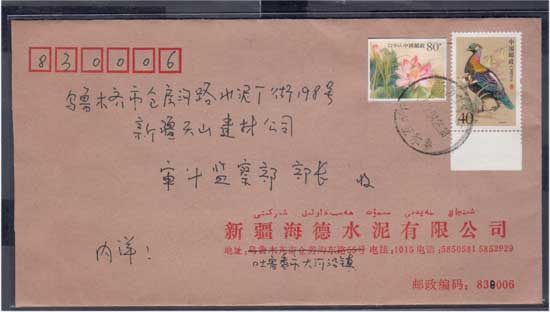 830006
中国邮政 80分
中国邮政
40分
乌鲁木齐市仓房沟路水泥厂街198号
新疆天山建材公司
审计监察部 部长 收
新疆海德水泥有限公司
地址:乌鲁木齐市仓房沟东路66号 电挂:1015 电话:5850581 5852929
吐鲁番市大河沿镇
内详!
邮政编码:830006